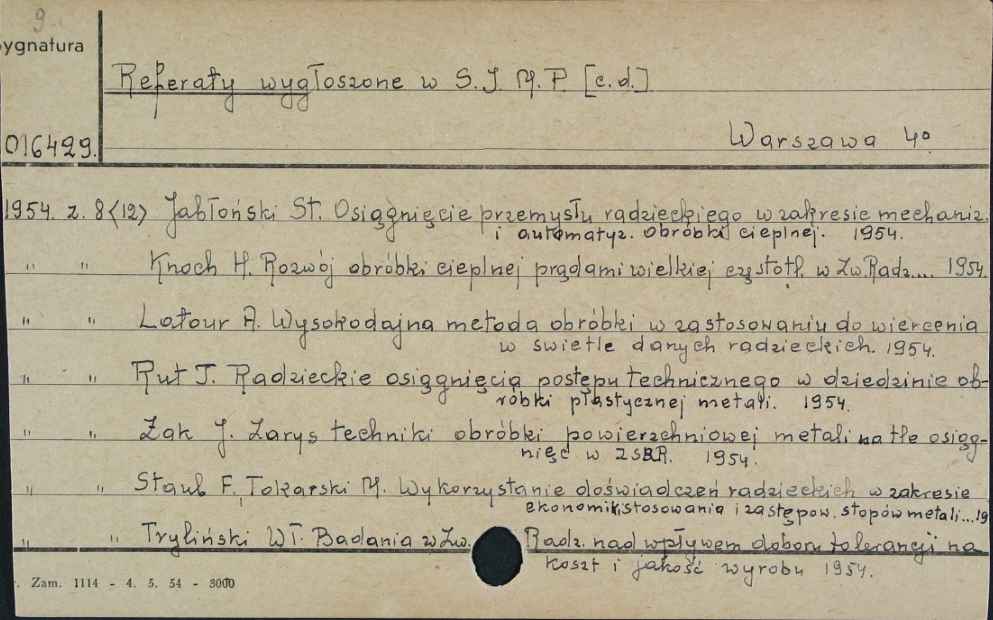 9
ygnatura
Referaty wygłoszone w S.I.M.P. [c.d.]
016429.
Warszawa 4º
1954. z. 8<12> Jabłoński St. Osiągnięcie przemysłu radzieckiego w zakresie mechaniz.
i automatyz. obróbki cieplnej. 1954.
" " Knoch H. Rozwój obróbki cieplnej prądami wielkiej częstotl. w Zw. Radz.... 1954.
" " Latour A. Wysokodajna metoda obróbki w zastosowaniu do wiercenia
w świetle danych radzieckich. 1954.
" " Rut T. Radzieckie osiągnięcia postępu technicznego w dziedzinie ob-
róbki plastycznej metali. 1954.
" " Żak J. Zarys techniki obróbki powierzchniowej metali na tle osiąg-
nięć w ZSRR. 1954.
" " Staub F., Tokarski M. Wykorzystanie doświadczeń radzieckich w zakresie
ekonomik. stosowania i zastępow. stopów metali...19
" " Tryliński Wł. Badania w Zw. Radz. nad wpływem doboru tolerancji na
koszt i jakość wyrobu 1954.
. Zam. 1114 - 4. 5. 54 - 3000